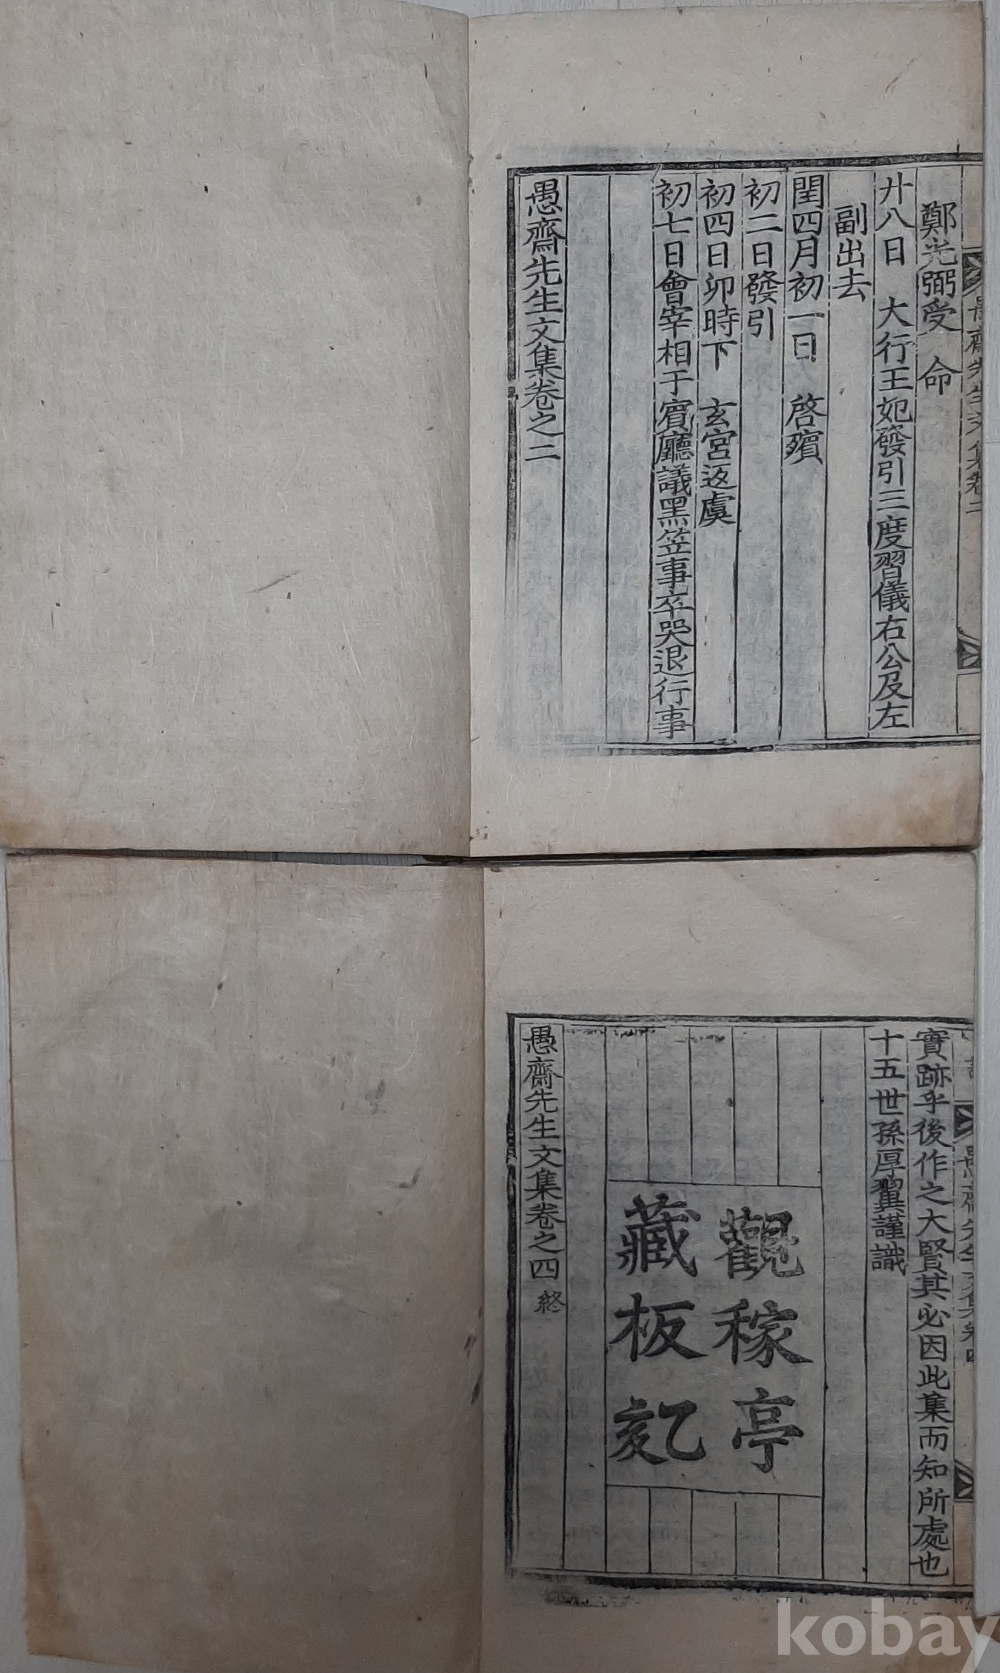 愚齋先生文集卷二
鄭光弼受 命
廾八日 大行王妃發引三度習儀右公及左
副出去
閏四月初一日 啓殯
初二日發引
初四日卯時下 玄宮返虞
初七日會宰相于賓廳議黑笠事卒哭退行事
愚齋先生文集卷之二
愚齋先生文集卷四
實跡乎後作之大賢其必因此集而知所處也
十五世孫厚翼謹識
觀稼亭
藏板
愚齋先生文集卷之四 終
kobay